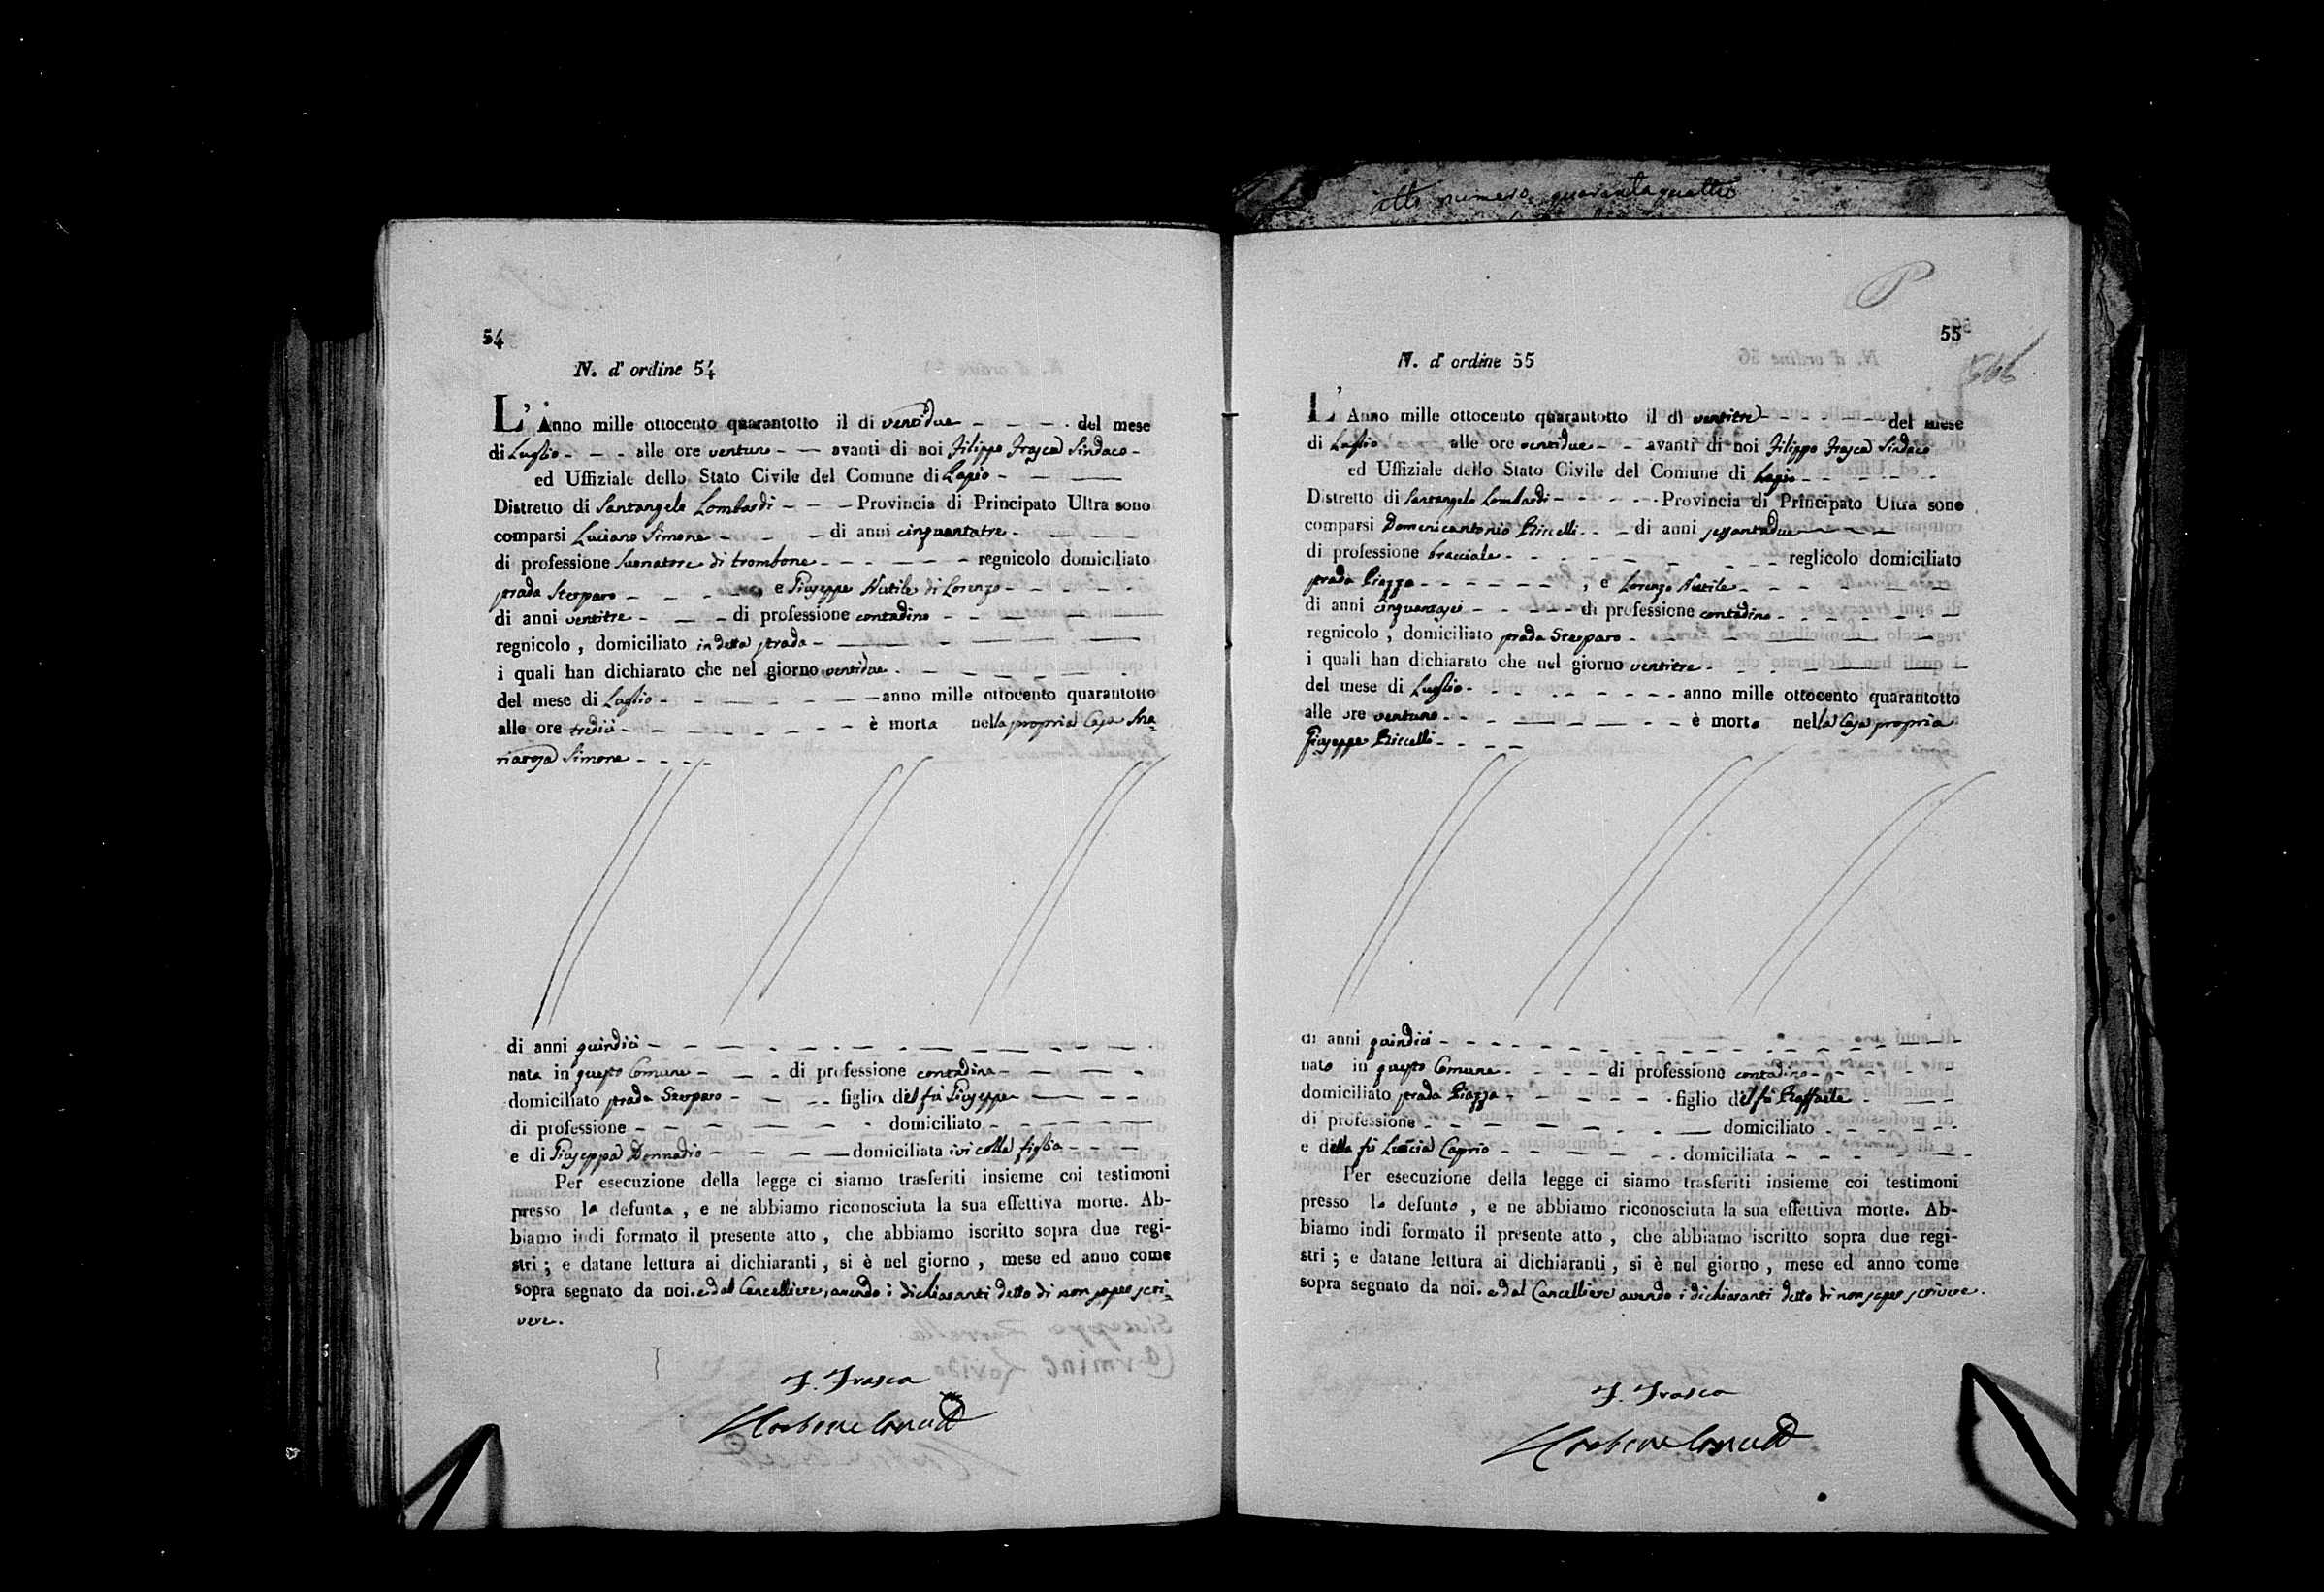 atto numero quarantaquattro
54
N. d' ordine 54
L' Anno mille ottocento quarantotto il di ventidue - - - - del mese
di Luglio - - - alle ore ventuno - - avanti di noi Filippo Frasca Sindaco -
ed Uffiziale dello Stato Civile del Comune di Lapio - - -
Distretto di Santangelo Lombardi - - - Provincia di Principato Ultra sono
comparsi Luciano Simone - - - - di anni cinquantatre - - - -
di professione suonatore di trombone - - - - - - regnicolo domiciliato
strada Sterparo - - - - , e Giuseppe Nutile di Lorenzo - - - - -
di anni ventitre - - - di professione contadino - - - - -
regnicolo , domiciliato in detta strada - - - - -
i quali han dichiarato che nel giorno ventidue - - - - - - -
del mese di Luglio - - - - - - - anno mille ottocento quarantotto
alle ore tredici - - - - - - - - è morta nella propria Casa Ma=
riarosa Simone - - - -
di anni quindici - - - - - - - - - - - - - -
nata in questo Comune - - - di professione contadina - - - -
domiciliato strada Sterparo - - - - figlia del fù Giuseppe - - - -
di professione - - - - - - - domiciliato - - - - - -
e di Giuseppa Donnadio - - - - - domiciliata ivi colla figlia - - -
Per esecuzione della legge ci siamo trasferiti insieme coi testimoni
presso la defunta , e ne abbiamo riconosciuta la sua effettiva morte. Ab-
biamo indi formato il presente atto , che abbiamo iscritto sopra due regi-
stri ; e datane lettura ai dichiaranti , si è nel giorno , mese ed anno come
sopra segnato da noi. e dal Cancelliere, avendo i dichiaranti detto di non saper scri=
vere.
F. Frasca
55
N. d' ordine 55
L' Anno mille ottocento quarantotto il di ventitre - - - - - del mese
di Luglio alle ore ventidue - - avanti di noi Filippo Frasca Sindaco
ed Uffiziale dello Stato Civile del Comune di Lapio - - - - -
Distretto di Santangelo Lombardi - - - - - Provincia di Principato Ultra sono
comparsi Domenicantonio Riccelli - - - di anni sessantadue - - - -
di professione bracciale - - - - - - - - reglicolo domiciliato
strada Piazza - - - - - - , e Lorenzo Nutile - - - - - -
di anni cinquantasei - - - - - di professione contadino - - - - - - -
regnicolo , domiciliato strada Sterparo - - - - - -
i quali han dichiarato che nel giorno ventitre - - - - - -
del mese di Luglio - - - - - - - - anno mille ottocento quarantotto
alle ore ventuno - - - - - - - - è morto nella Casa propria
Giuseppe Riccelli - - - -
di anni quindici - - - - - - - - - - - - - -
nato in questo Comune - - - - - di professione contadino - - - - -
domiciliato strada Piazza - - - - - - figlio del fù Raffaele - - -
di professione - - - - - - - - domiciliato - - - - -
e della fù Luccia Caprio - - - - - - - domiciliata - - - - - -
Per esecuzione della legge ci siamo trasferiti insieme coi testimoni
presso lo defunto , e ne abbiamo riconosciuta la sua effettiva morte. Ab-
biamo indi formato il presente atto , che abbiamo iscritto sopra due regi-
stri ; e datane lettura ai dichiaranti , si è nel giorno , mese ed anno come
sopra segnato da noi. e dal Cancelliere avendo i dichiaranti detto di non saper scrivere.
F. Frasca